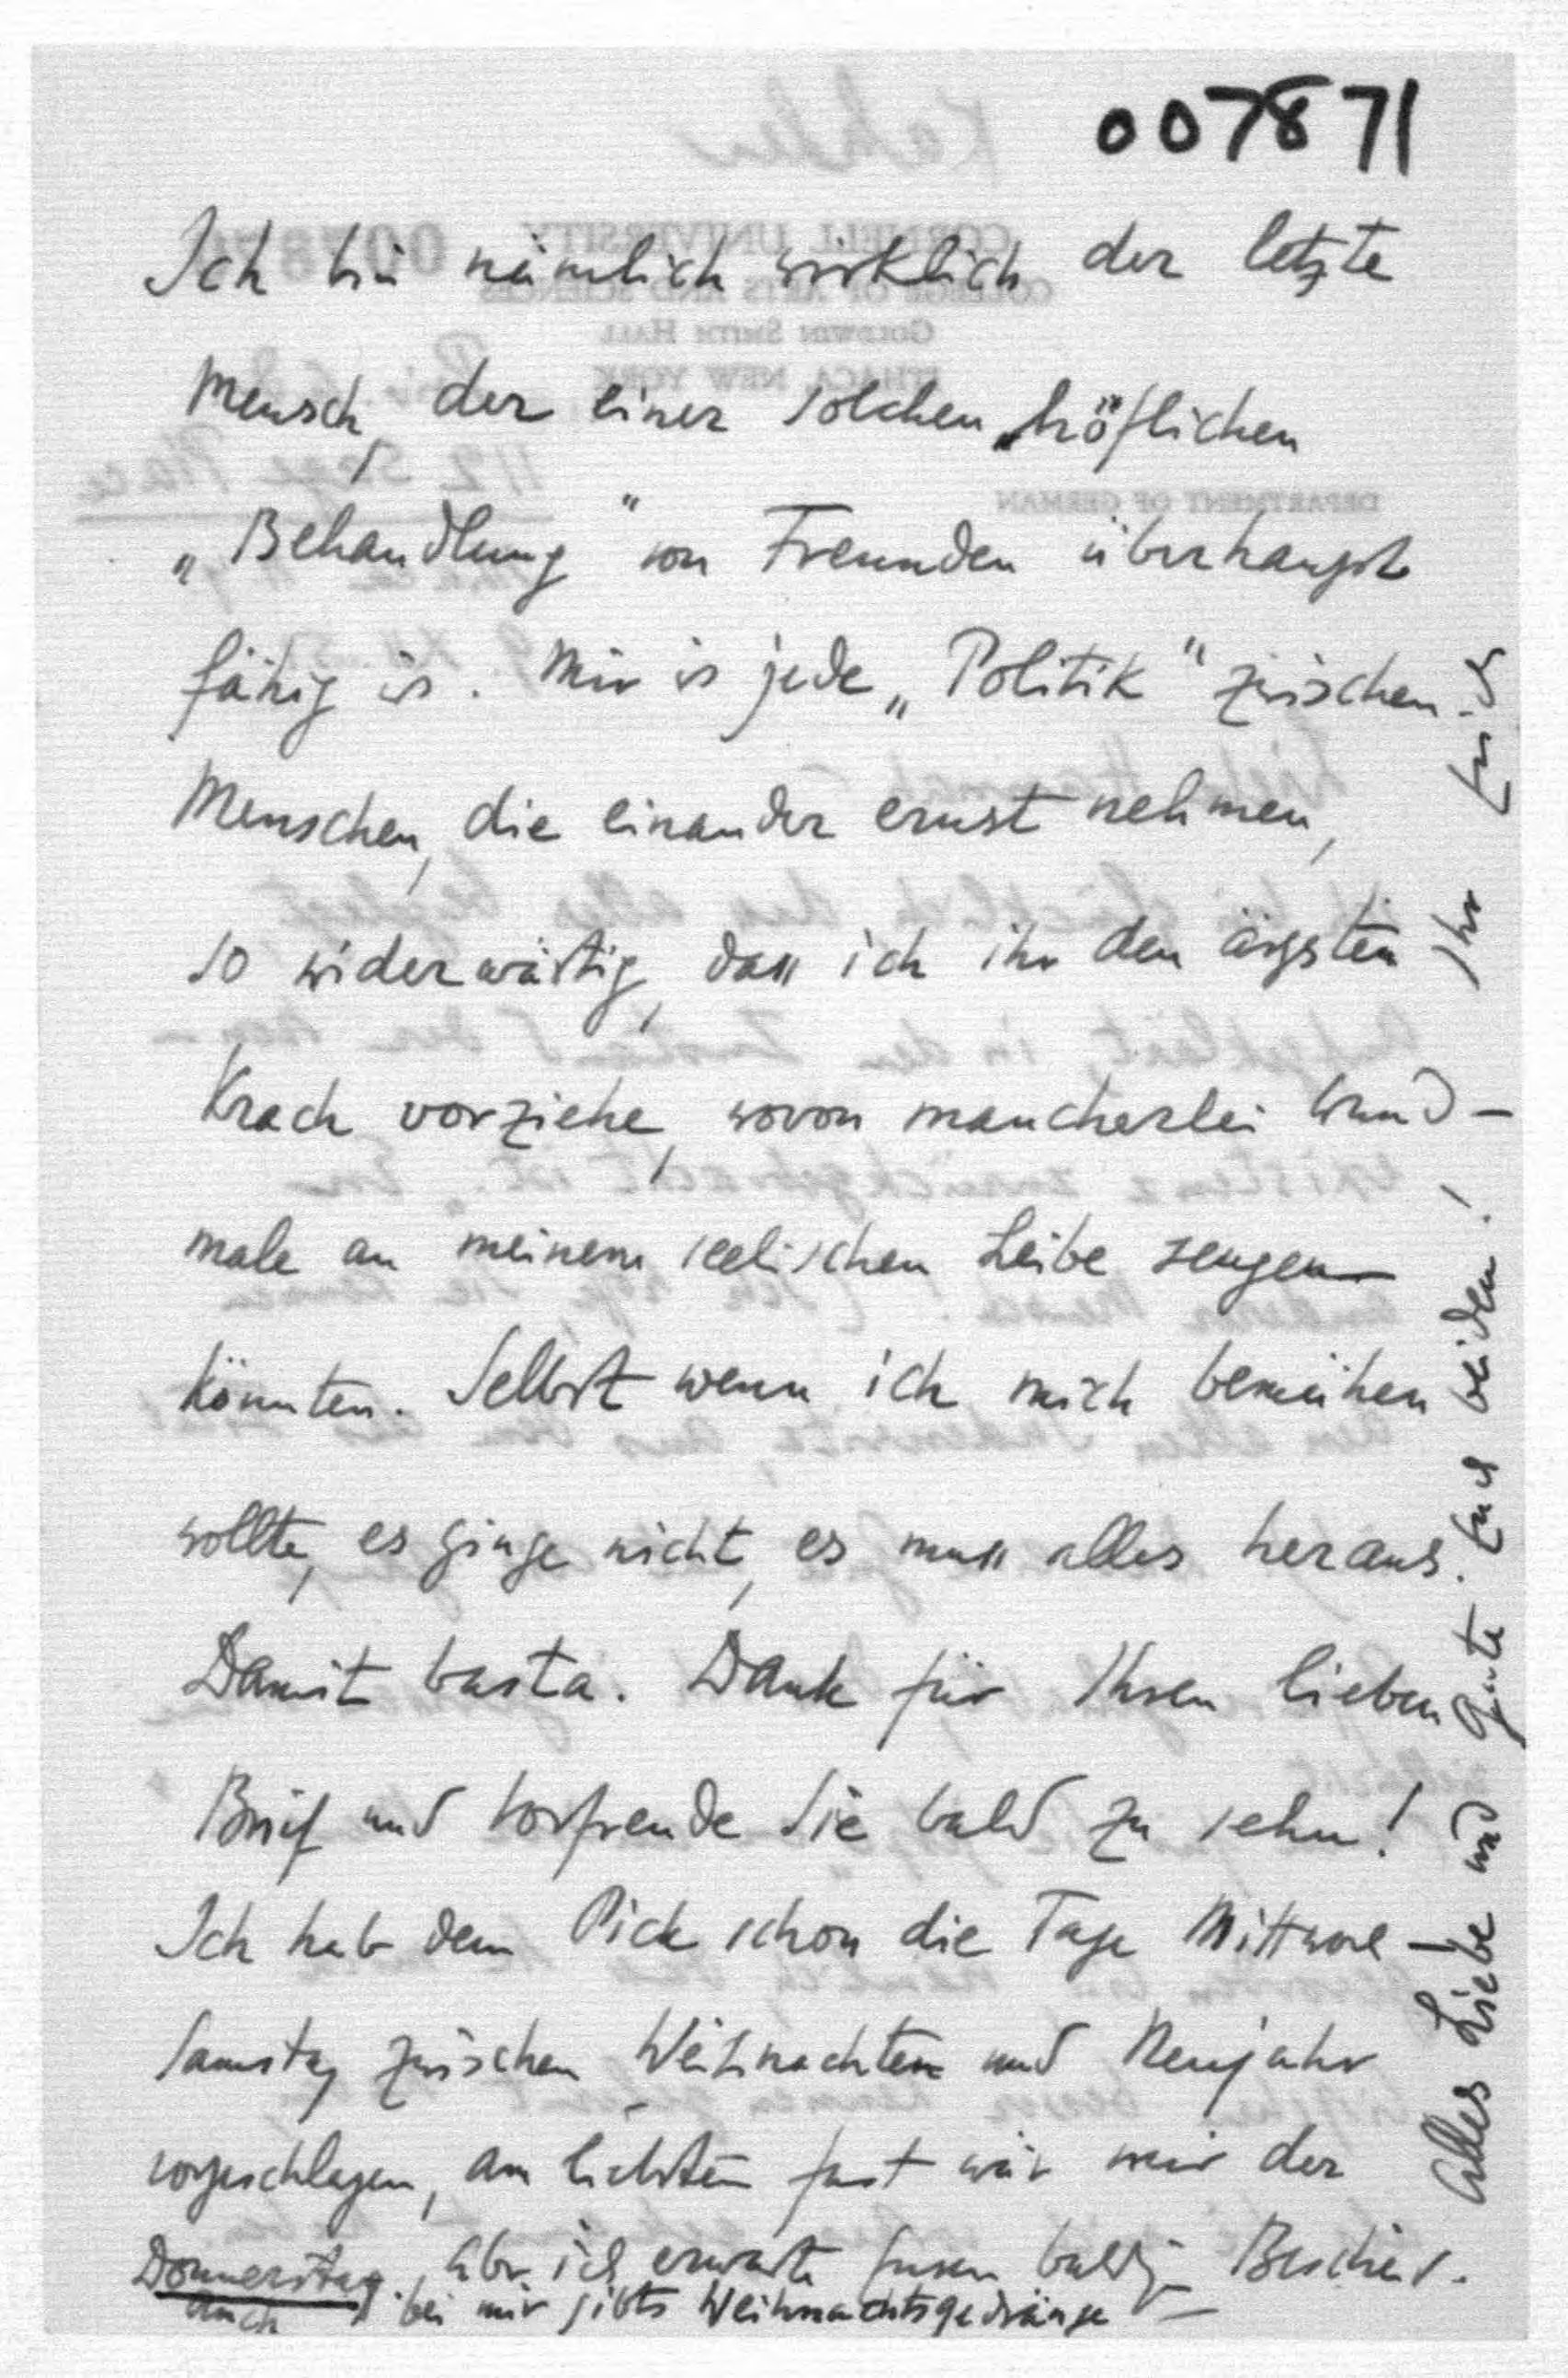 007871
Ich bin nämlich wirklich der letzte
Mensch, der einer solchen „höflichen
„Behandlung" von Freunden überhaupt
fähig is. Mir is jede „Politik" zwischen
Menschen, die einander ernst nehmen,
so widerwärtig, dass ich ihr den ärgsten
Krach vorziehe, wovon mancherlei Wund-
male an meinem seelischen Leibe zeugen
könnten. Selbst wenn ich mich bemühen
wollte, es ginge nicht, es muss alles heraus.
Damit basta. Dank für Ihren lieben
Brief und Vorfreude Sie bald zu sehn!
Ich hab dem Pick schon die Tage Mittwoch-
Samstag zwischen Weihnachten und Neujahr
vorgeschlagen, am liebsten fast wär mir der
Donnerstag. Aber ich erwarte baldig Bescheid.
auch bei mir gibts Weihnachtsgedränge –
Alles Liebe und Gute Euch beiden! Ihr Erich
CORNELL UNIVERSITY
COLLEGE OF ARTS AND SCIENCES
GOLDWIN SMITH HALL
ITHACA, NEW YORK
DEPARTMENT OF GERMAN